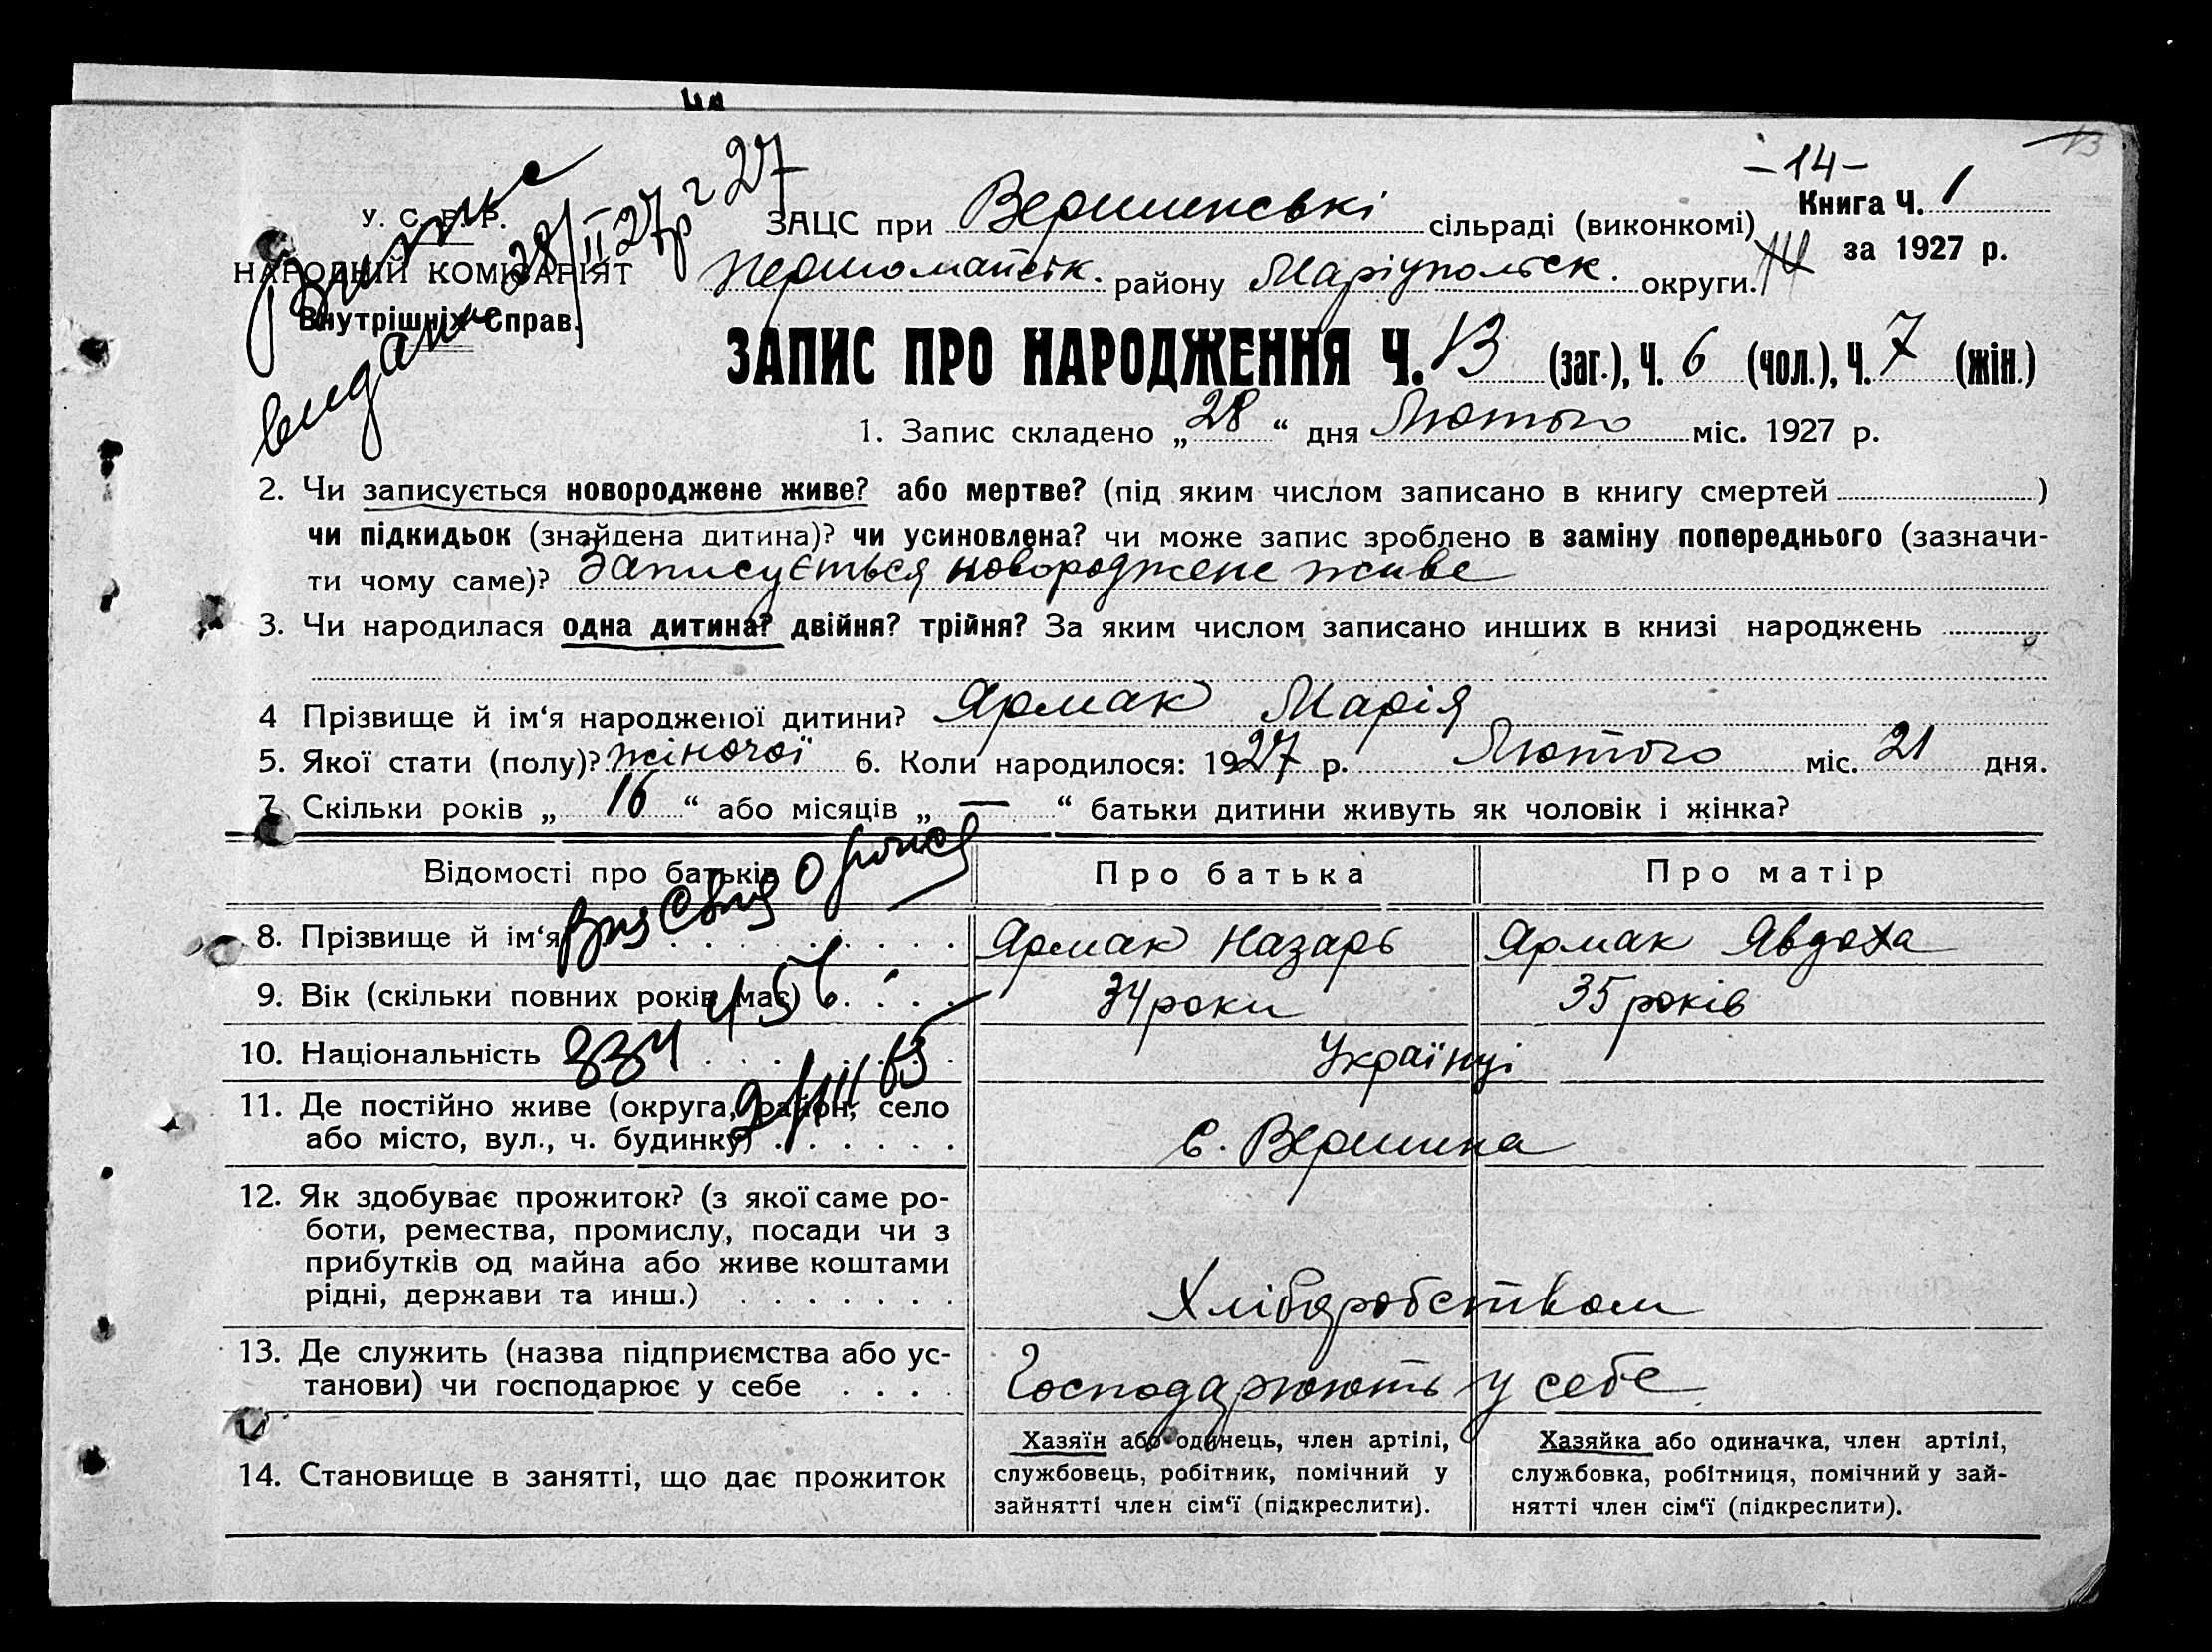 -14-
13
У. С. Р. Р.
НАРОДНІЙ КОМІСАРІЯТ
Внутрішніх Справ.
Випис
видани 28/II 27р
ЗАЦС при Вершинські сільраді (виконкомі)
Книга Ч. 1
за 1927 р.
Першомайськ. району Маріупольск. округи.
ЗАПИС ПРО НАРОДЖЕННЯ Ч. 13 (заг.), Ч. 6 (чол.), Ч. 7 (жін.)
1. Запис складено „28“ дня Лютого міс. 1927 р.
2. Чи записується новороджене живе? або мертве? (під яким числом записано в книгу смертей )
чи підкидьок (знайдена дитина)? чи усиновлена? чи може запис зроблено в заміну попереднього (зазначи-
ти чому саме)? Записується новороджене живе
3. Чи народилася одна дитина? двійня? трійня? За яким числом записано инших в книзі народжень
4 Прізвище й ім‘я народженої дитини? Ярмак Марія
5. Якої стати (полу)? жіночої 6. Коли народилось: 1927 р. Лютого міс. 21 дня.
7. Скільки років „16“ або місяців „—“ батьки дитини живуть як чоловік і жінка?
Відомості про батьків
Про батька
Про матір
8. Прізвище й ім‘я
Ярмак Назарь
Ярмак Явдоха
9. Вік (скільки повних років має)
34 роки
35 років
10. Національність
Українці
11. Де постійно живе (округа, район, село
або місто, вул., ч. будинку)
с. Вершина
12. Як здобуває прожиток? (з якої саме ро-
боти, ремества, промислу, посади чи з
прибутків од майна або живе коштами
рідні, держави та инш.)
Хліборобством
13. Де служить (назва підприємства або ус-
танови) чи господарює у себе
Господарюють у себе
14. Становище в занятті, що дає прожиток
Хазяїн або одинець, член артілі,
службовець, робітник, помічний у
зайнятті член сім‘ї (підкреслити).
Хазяйка або одиначка, член артілі,
службовка, робітниця, помічний у зай-
нятті член сім‘ї (підкреслити).